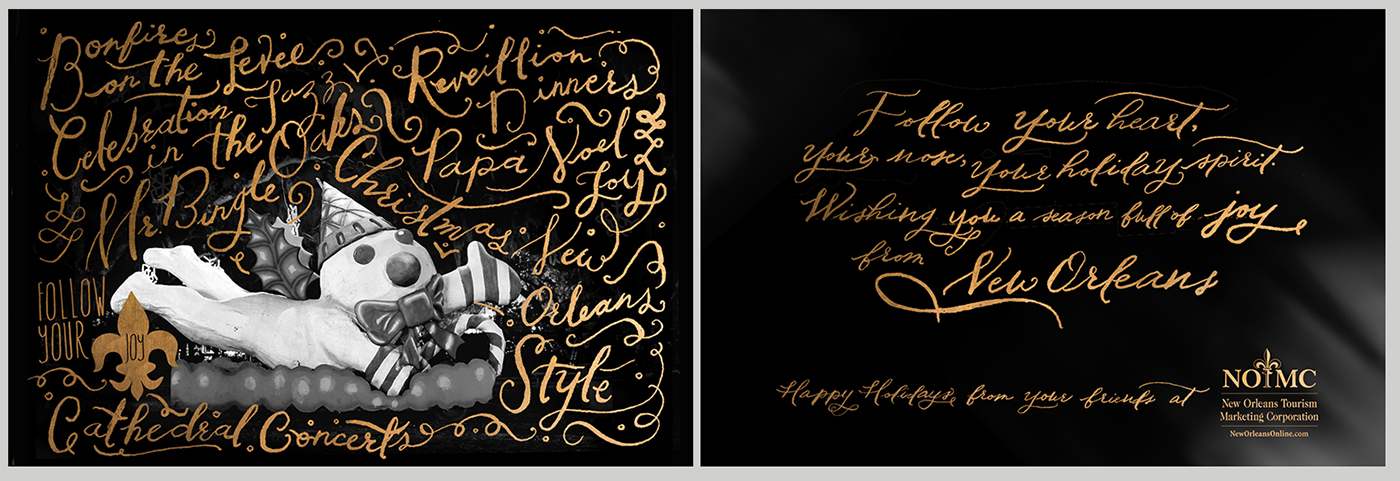 Bonfires
on the Levee
Celebration
in the Oaks
Jazz
Reveillion
Dinners
Papa Noel
Mr. Bingle
Christmas
New
Orleans
Style
Joy
FOLLOW
YOUR
JOY
Cathedral Concerts
Follow your heart,
your nose, your holiday spirit.
Wishing you a season full of joy
from New Orleans
Happy Holidays from your friends at
NOTMC
New Orleans Tourism
Marketing Corporation
NewOrleansOnline.com